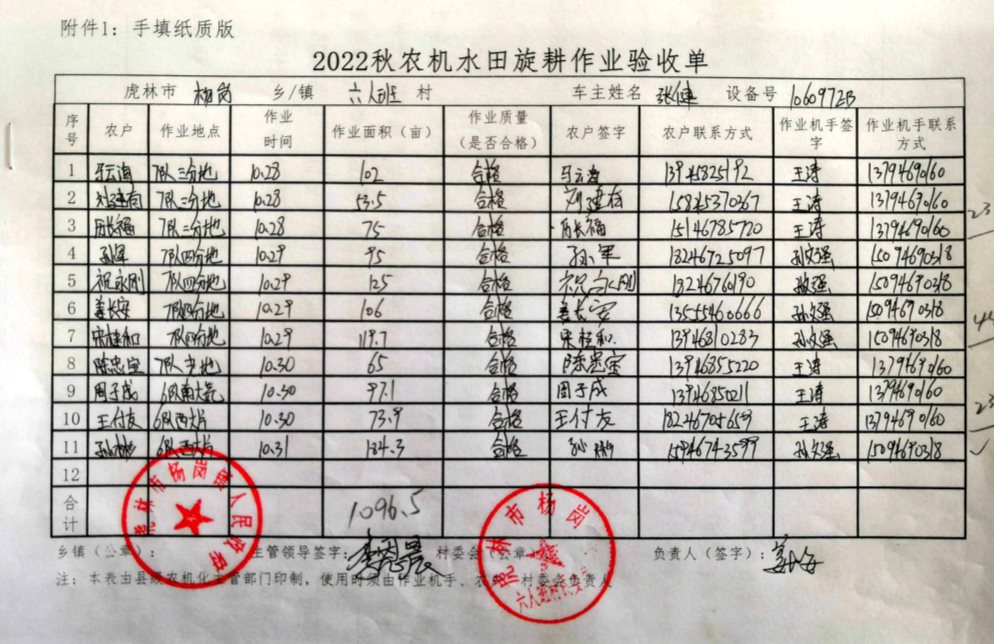 附件1：手填纸质版
2022秋农机水田旋耕作业验收单
虎林市 杨岗 乡/镇 六人班 村 车主姓名 张健 设备号 1060972B
序号 农户 作业地点 作业时间 作业面积（亩） 作业质量（是否合格） 农户签字 农户联系方式 作业机手签字 作业机手联系方式
1 7队三分地 10.28 102 合格 13946825192 王涛 13794690160
2 7队三分地 10.28 合格 15845370367 王涛 13794690160
3 历长福 7队三分地 10.28 75 合格 历长福 15146785720 王涛 13794690160
23
4 孙军 7队四分地 10.29 95 合格 孙军 18246725097 孙文强 15094690318
5 祝永刚 7队四分地 10.29 125 合格 祝永刚 18246760190 15094690318
6 姜长安 7队四分地 10.29 106 合格 姜长安 13555460666 孙文强 15094690318
7 宋桂和 7队四分地 10.29 119.7 合格 宋桂和 13946810283 孙文强 15094690318
8 陈忠宝 10.30 65 合格 陈忠宝 13946855220 王涛 13794690160
9 周于成 10.30 97.1 合格 周于成 王涛 13794690160
10 王付友 6队西大片 10.30 73.9 合格 王付友 18246705659 王涛 13794690160
23
11 6队西大片 10.31 184.3 合格 15946743599 孙文强 15094690318
12
合计 1096.5
虎林市杨岗镇人民政府
虎林市杨岗镇六人班村民委员会
乡镇（公章）： 主管领导签字： 村委会（公章） 负责人（签字）：
注：本表由县级农机化主管部门印制，使用时须由作业机手、农户、村委会负责人